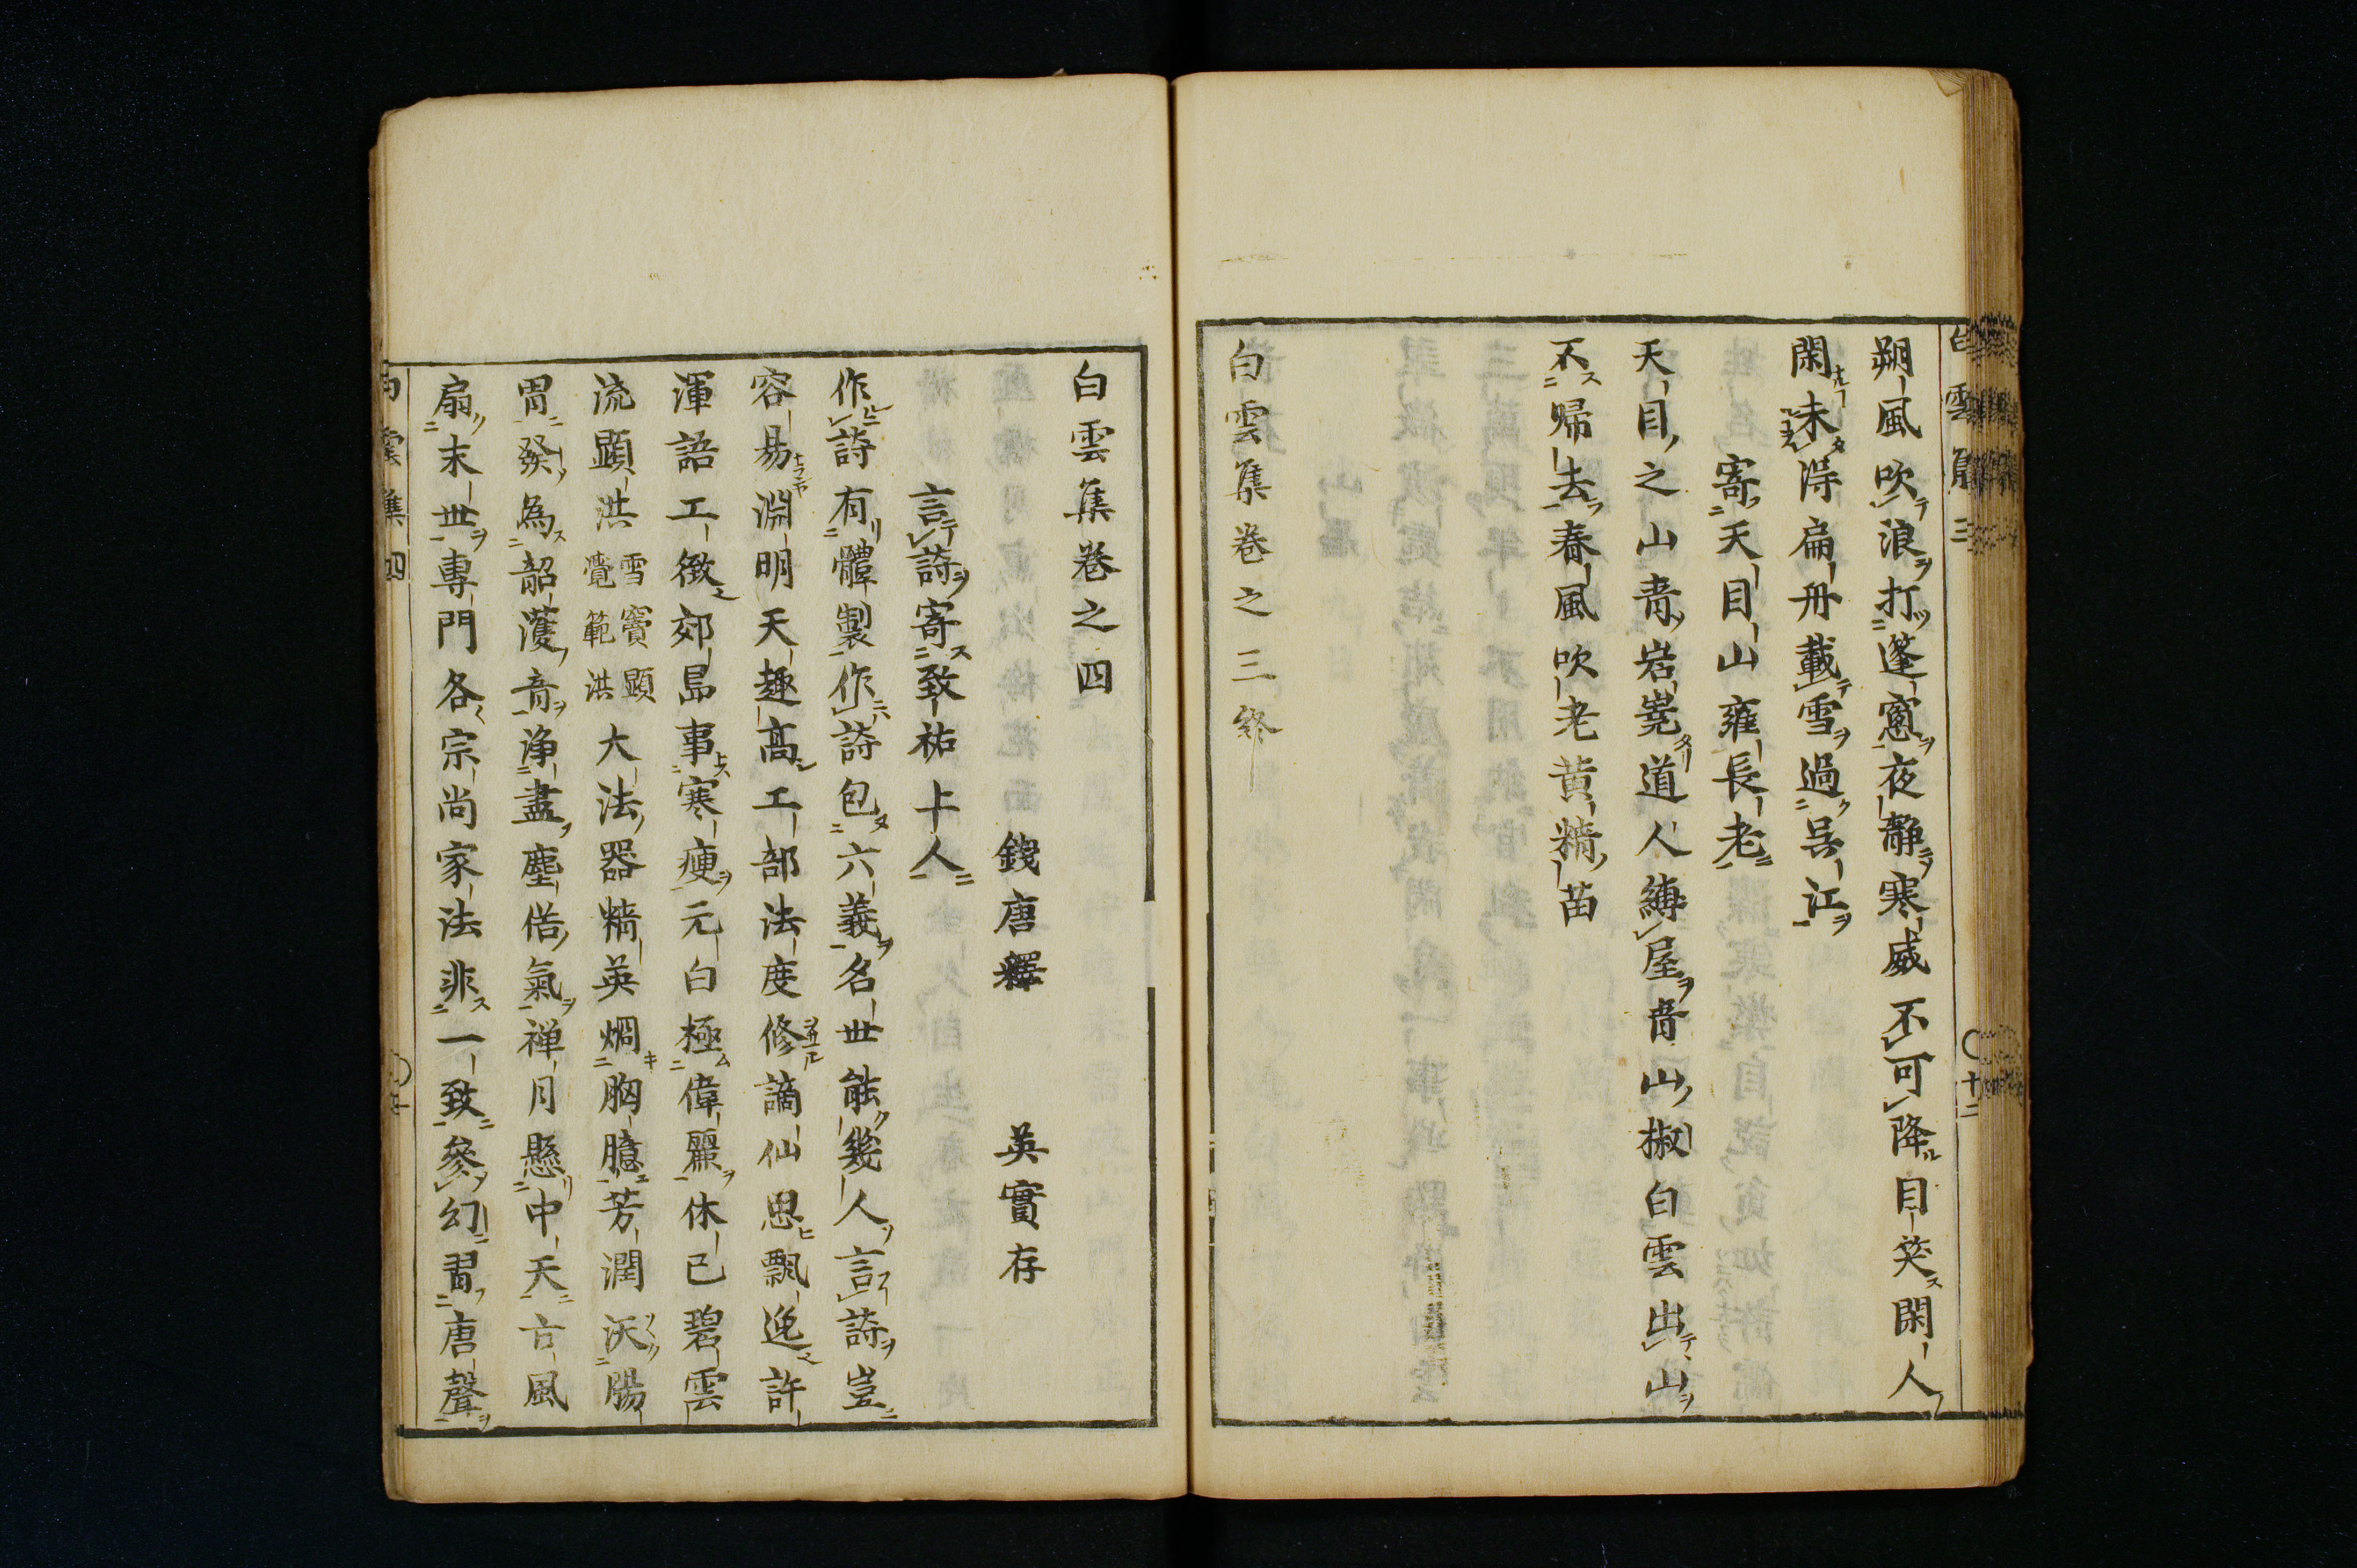 白雲集三
十二
朔風吹浪打蓬窻夜靜寒威不可降自笑閑人
閑未得扁舟載雪過呉江
寄天目山雍長老
天目之山青岩嶤道人縛屋青山椒白雲出山
不歸去春風吹老黄精苗
白雲集卷之三終
白雲集卷之四
錢唐釋 英實存
言詩寄致祐上人
作詩有體製作詩包六義名世能幾人言詩豈
容易淵明天趣高工部法度修謫仙思飄逸許
渾語工緻郊島事寒瘦元白極偉麗休已碧雲
流顕洪雪竇顕覺範洪大法器精英烱胸臆芳潤沃腸
胃發為韶濩音淨盡塵俗氣禅月懸中天古風
扇末世專門各宗尚家法非一致參幻習唐聲
白雲集四